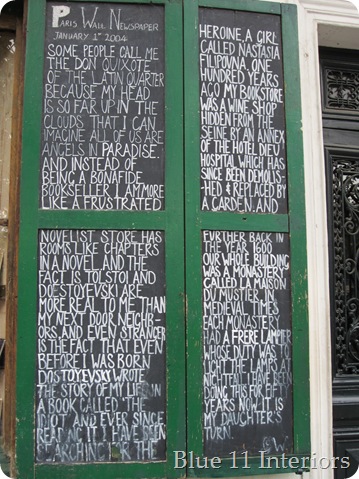 PARIS WALL NEWSPAPER
JANUARY 1ST 2004
SOME PEOPLE CALL ME
THE DON QUIXOTE
OF THE LATIN QUARTER
BECAUSE MY HEAD
IS SO FAR UP IN THE
CLOUDS THAT I CAN
IMAGINE ALL OF US ARE
ANGELS IN PARADISE.
AND INSTEAD OF
BEING A BONAFIDE
BOOKSELLER I AM MORE
LIKE A FRUSTRATED
NOVELIST STORE HAS
ROOMS LIKE CHAPTERS
IN A NOVEL AND THE
FACT IS TOLSTOI AND
DOSTOYEVSKI ARE
MORE REAL TO ME THAN
MY NEXT DOOR NEIGHB-
ORS, AND EVEN STRANGER
IS THE FACT THAT EVEN
BEFORE I WAS BORN
DOSTOYEVSKY WROTE
THE STORY OF MY LIFE IN
A BOOK CALLED THE
IDIOT AND EVER SINCE
READING IT I HAVE BEEN
SEARCHING FOR THE
HEROINE A GIRL
CALLED NASTASIA
FILIPOVNA. ONE
HUNDRED YEARS
AGO MY BOOKSTORE
WAS A WINE SHOP
HIDDEN FROM THE
SEINE BY AN ANNEX
OF THE HOTEL DIEU
HOSPITAL WHICH HAS
SINCE BEEN DEMOLIS-
HED & REPLACED BY
A GARDEN. AND
FURTHER BACK IN
THE YEAR 1600
OUR WHOLE BUILDING
WAS A MONASTERY
CALLED LA MAISON
DU MUSTIER. IN
MEDIEVAL TIMES
EACH MONASTERY
HAD A FRERE LAMPIER
WHOSE DUTY WAS TO
LIGHT THE LAMPS AT
NIGHTFALL I HAVE BEEN
DOING THIS FOR FIFTY
YEARS NOW IT IS
MY DAUGHTER'S
TURN.
G W
Blue 11 Interiors